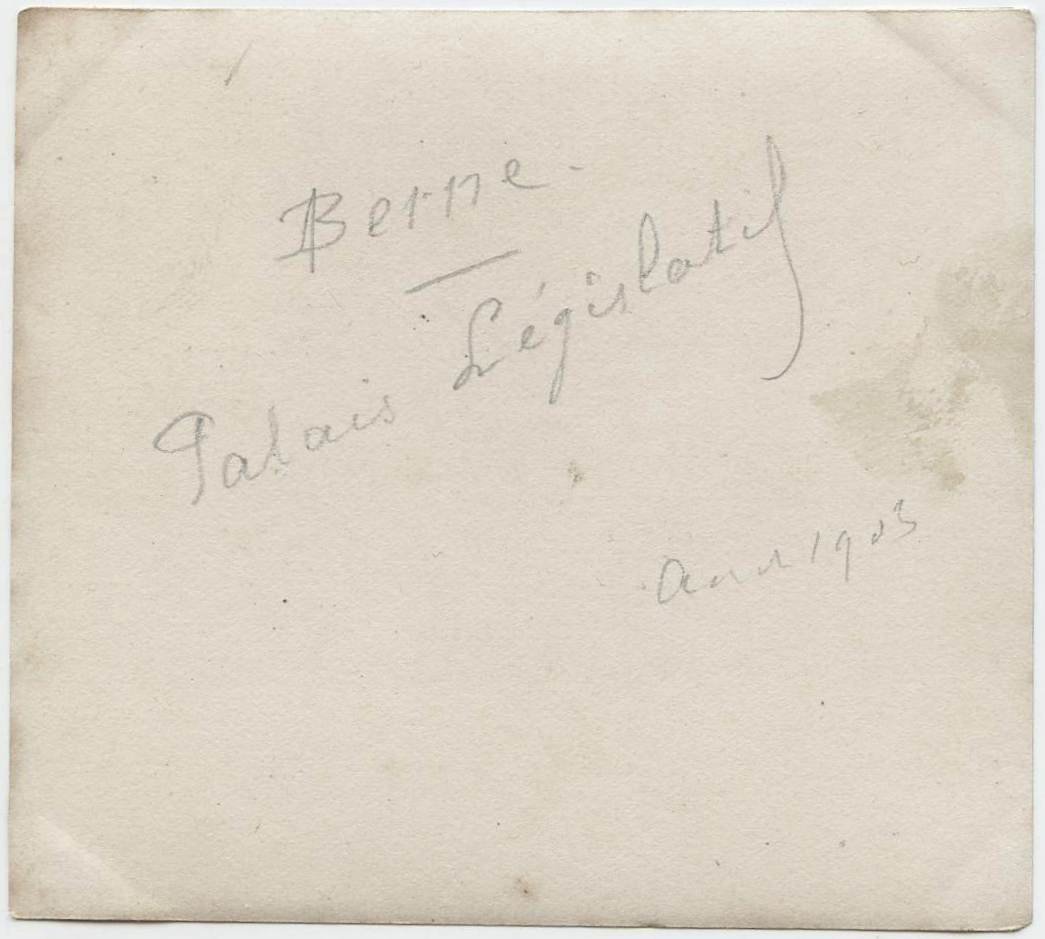 Berne.
Palais Législatif
1903